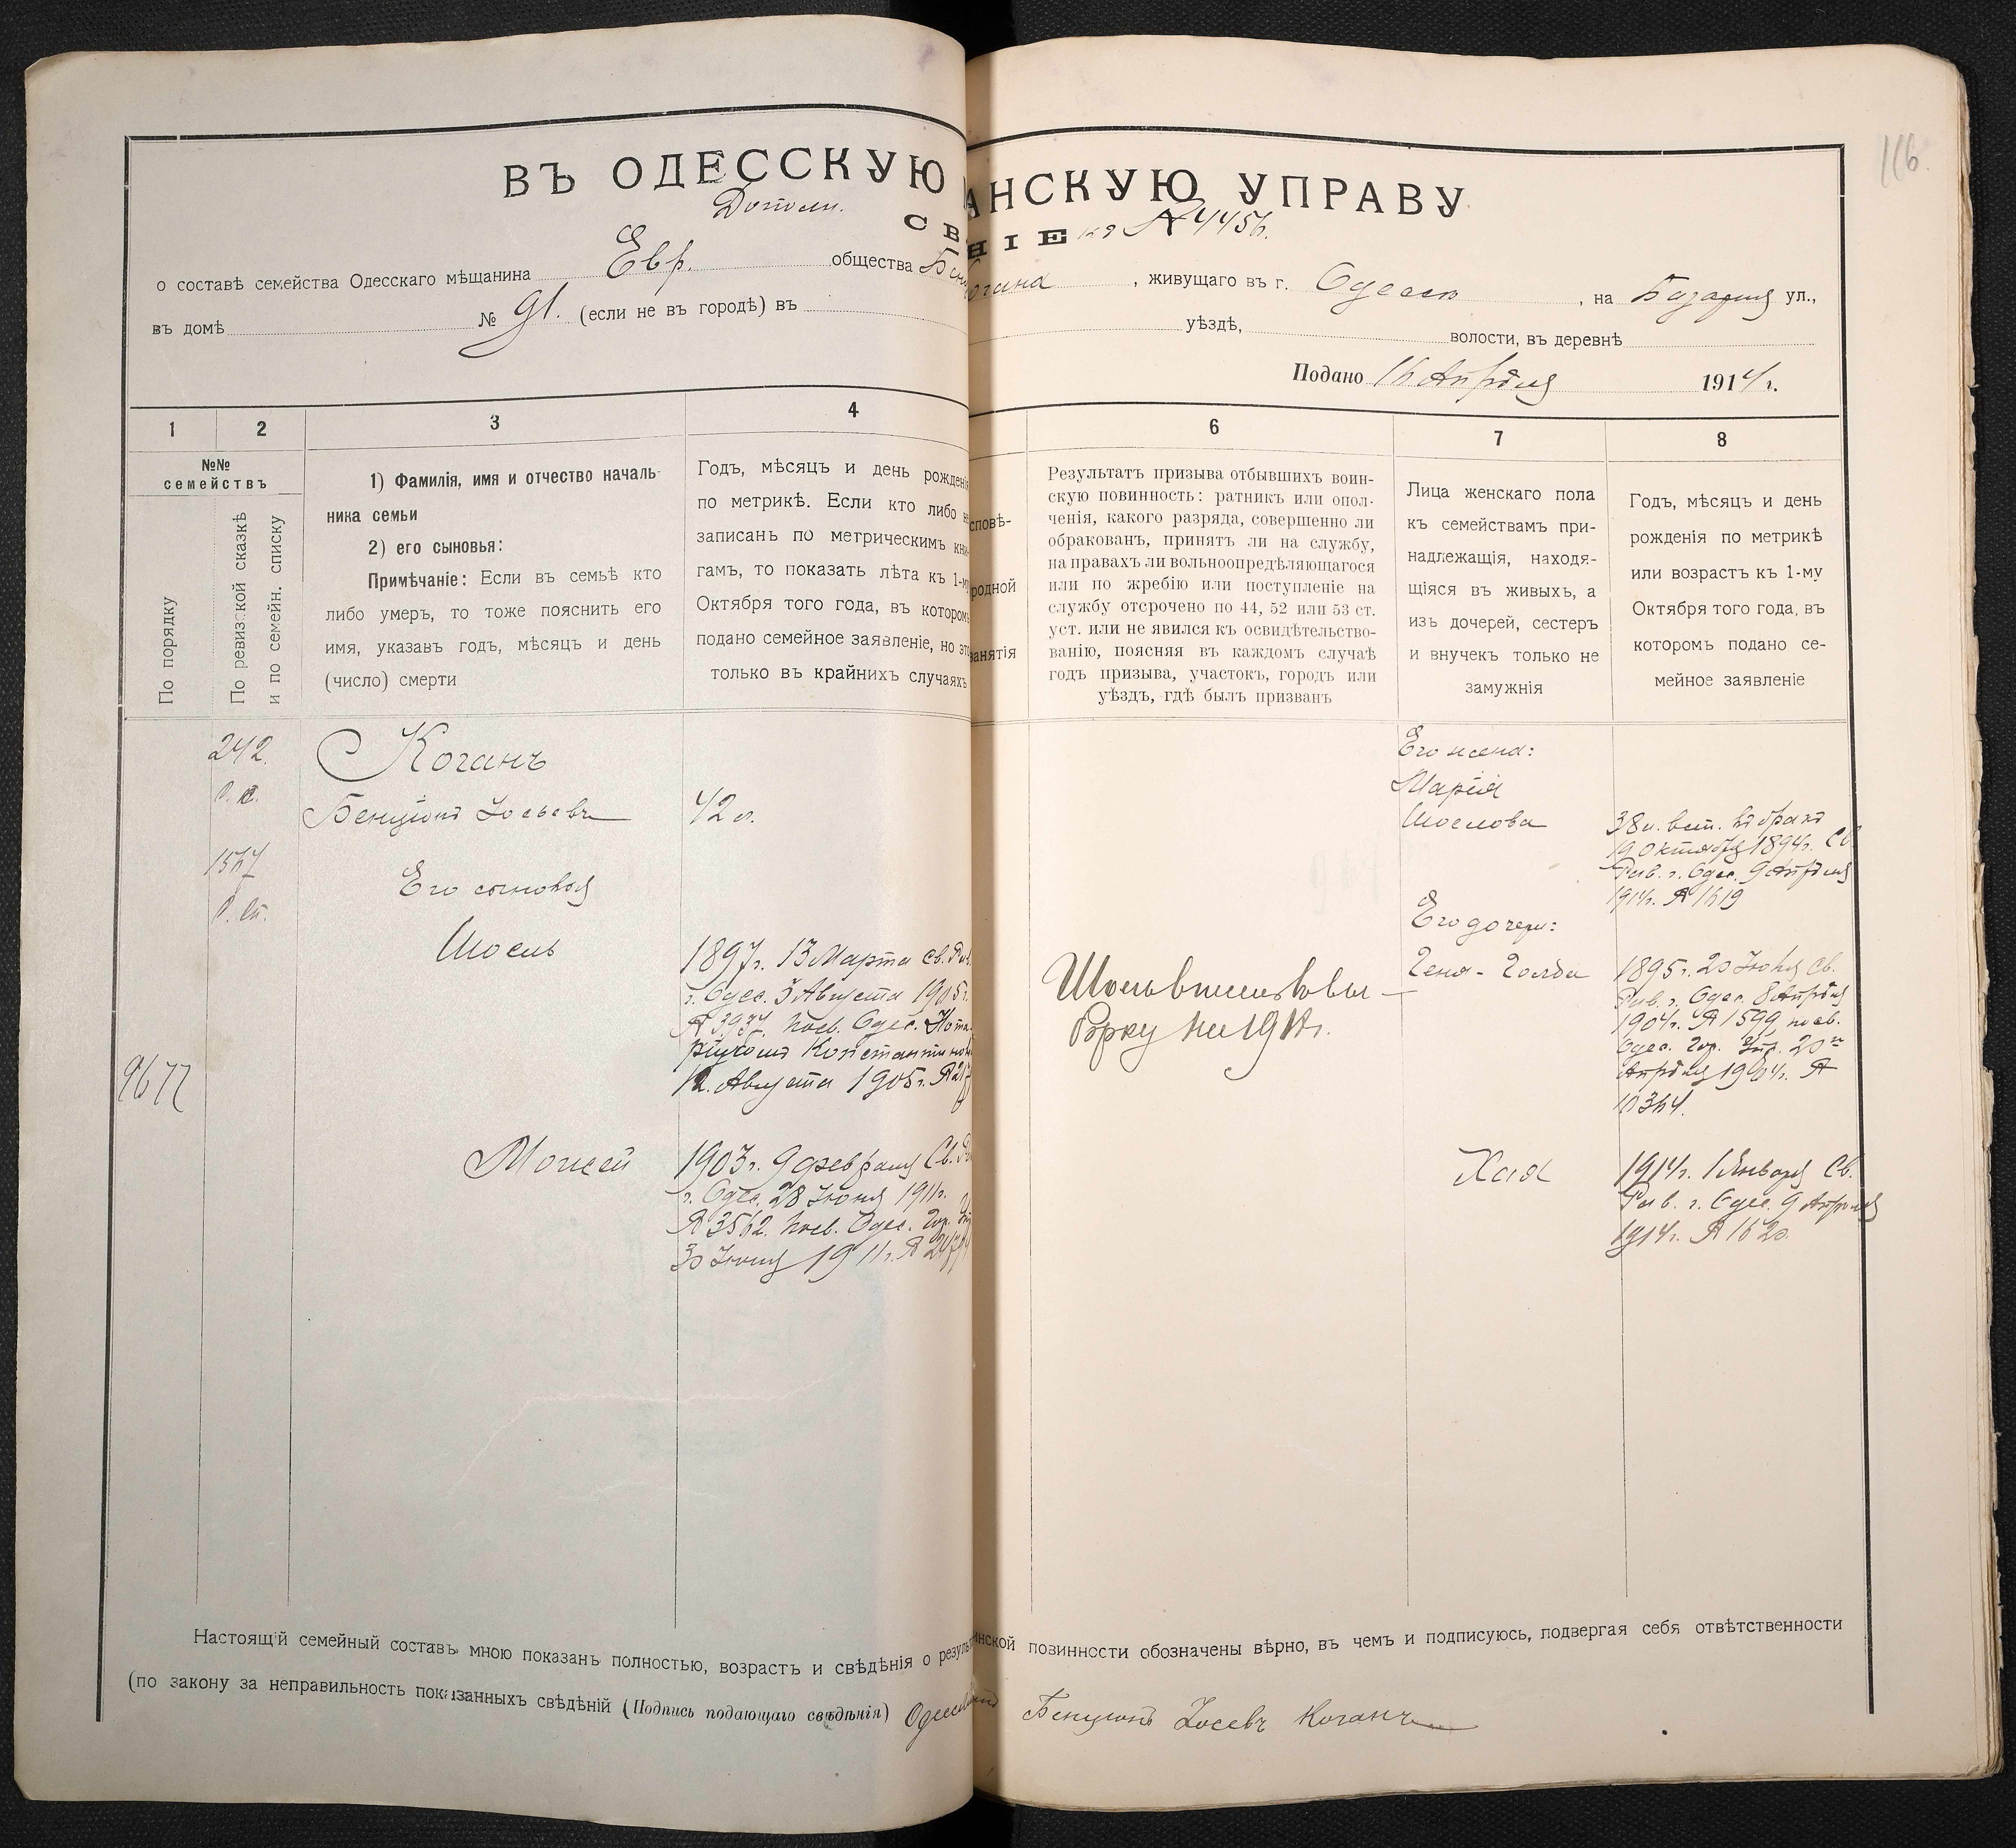 116.
ВЪ ОДЕССКУЮ АНСКУЮ УПРАВУ
Дополн.
СВ НІЕ № 4456.
о составѣ семейства Одесскаго мѣщанина Евр. общества Бен когана, живущаго въ г. Одессѣ, на Базарной ул.,
въ домѣ № 91. (если не въ городѣ) въ уѣздѣ, волости, въ деревнѣ
Подано 16 Апрѣля 1914 г.
1 2 3 4 6 7 8
№№ семействъ
По порядку
По ревизской сказкѣ
и по семейн. списку
1) Фамилія, имя и отчество началь-
ника семьи
2) его сыновья:
Примѣчаніе: Если въ семьѣ кто
либо умеръ, то тоже пояснить его
имя, указавъ годъ, мѣсяцъ и день
(число) смерти
Годъ, мѣсяцъ и день рожденія
по метрикѣ. Если кто либо не
записанъ по метрическимъ кни-
гамъ, то показать лѣта къ 1-му
Октября того года, въ которомъ
подано семейное заявленіе, но это
только въ крайнихъ случаяхъ
сповѣ-
родной
занятія
Результатъ призыва отбывшихъ воин-
скую повинность: ратникъ или опол-
ченія, какого разряда, совершенно ли
обракованъ, принятъ ли на службу,
на правахъ ли вольноопредѣляющагося
или по жребію или поступленіе на
службу отсрочено по 44, 52 или 53 ст.
уст. или не явился къ освидѣтельство-
ванію, поясняя въ каждомъ случаѣ
годъ призыва, участокъ, городъ или
уѣздъ, гдѣ былъ призванъ
Лица женскаго пола
къ семействамъ при-
надлежащія, находя-
щіяся въ живыхъ, а
изъ дочерей, сестеръ
и внучекъ только не
замужнія
Годъ, мѣсяцъ и день
рожденія по метрикѣ
или возрастъ къ 1-му
Октября того года, въ
которомъ подано се-
мейное заявленіе
9677
242
р. с.
1567
Коганъ
Бенціонъ Іосьевъ
Его сыновья
Шоель
Моисей
42 л.
1897 г. 13 Марта св. Рав.
г. Одес. 3 Августа 1905 г.
№ 3937 посв. Одес. Нота-
ріусомъ Константинов
12. Августа 1905 г. №
1903 г. 9 февраля Св. Ра
г. Одес. 28 Іюня 1911 г.
№ 3562. посв. Одес. Гор.
30 Іюня 1911 г. №
Его жена:
Марія
Шоелова
Его дочери:
Геня-Голда
Хая
38 л. вст. въ бракъ
19 октября 1894 г. Св
Рав. г. Одес. 9 Апрѣля
1914 г. № 1619
1895 г. 20 Св.
Рав. г. Одес. 8 Апрѣля
1904 г. № 1599 посв.
Одес. Гор. Упр. 20го
Апрѣля 1904 г. №
10364.
1914 г. 1 Января Св.
Рав. г. Одес. 9 Апрѣля
1914 г. № 1620
Настоящій семейный составъ мною показанъ полностью, возрастъ и свѣдѣнія о резуль инской повинности обозначены вѣрно, въ чемъ и подписуюсь, подвергая себя отвѣтственности
(по закону за неправильность показанныхъ свѣдѣній (Подпись подающаго свѣдѣнія) Бенционъ Іосевъ Коганъ